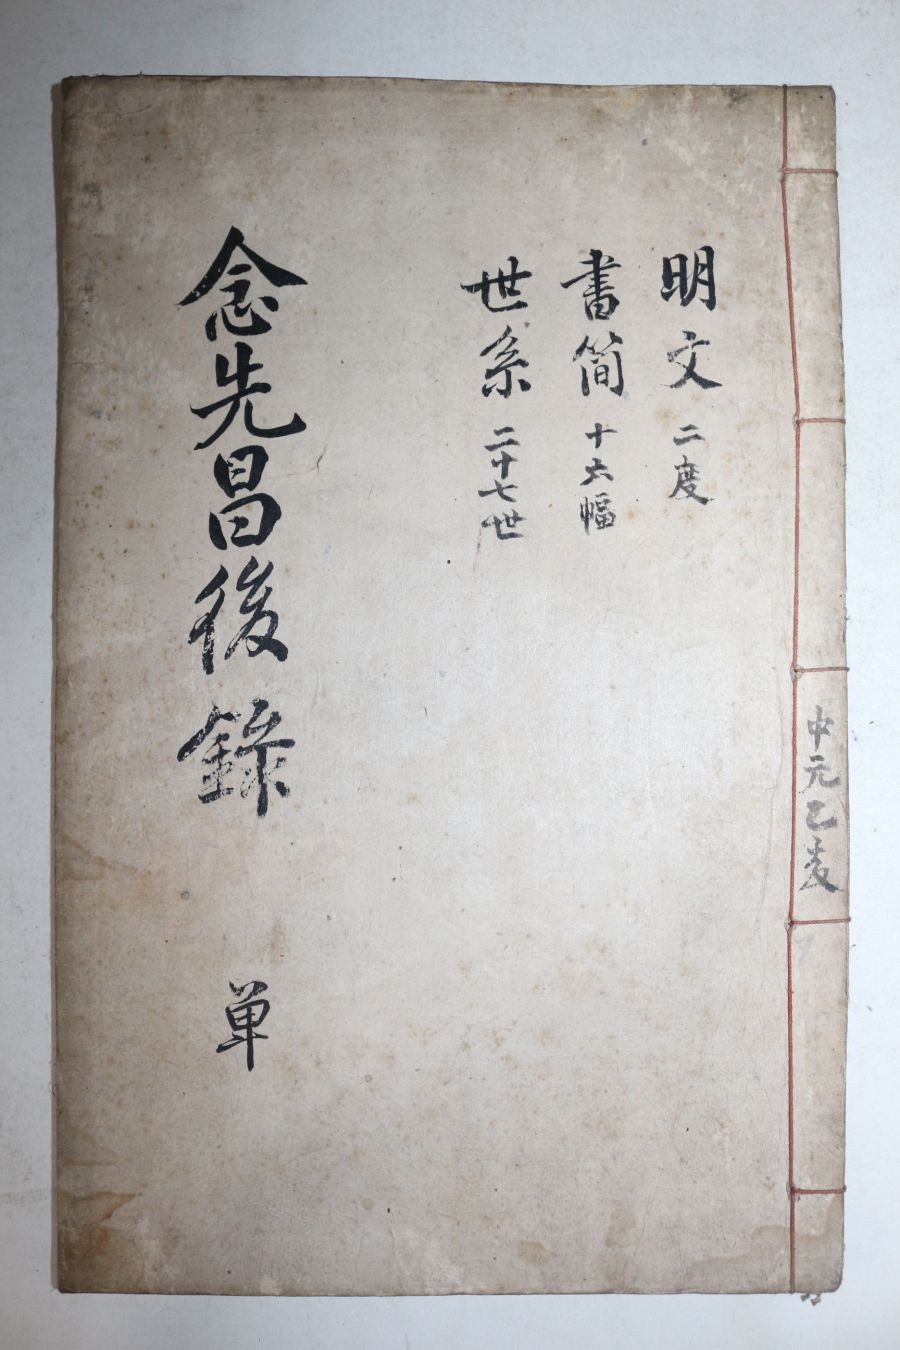 中元乙亥
明文 二度
書簡 十六幅
世系 二十七世
念先昌後錄 単